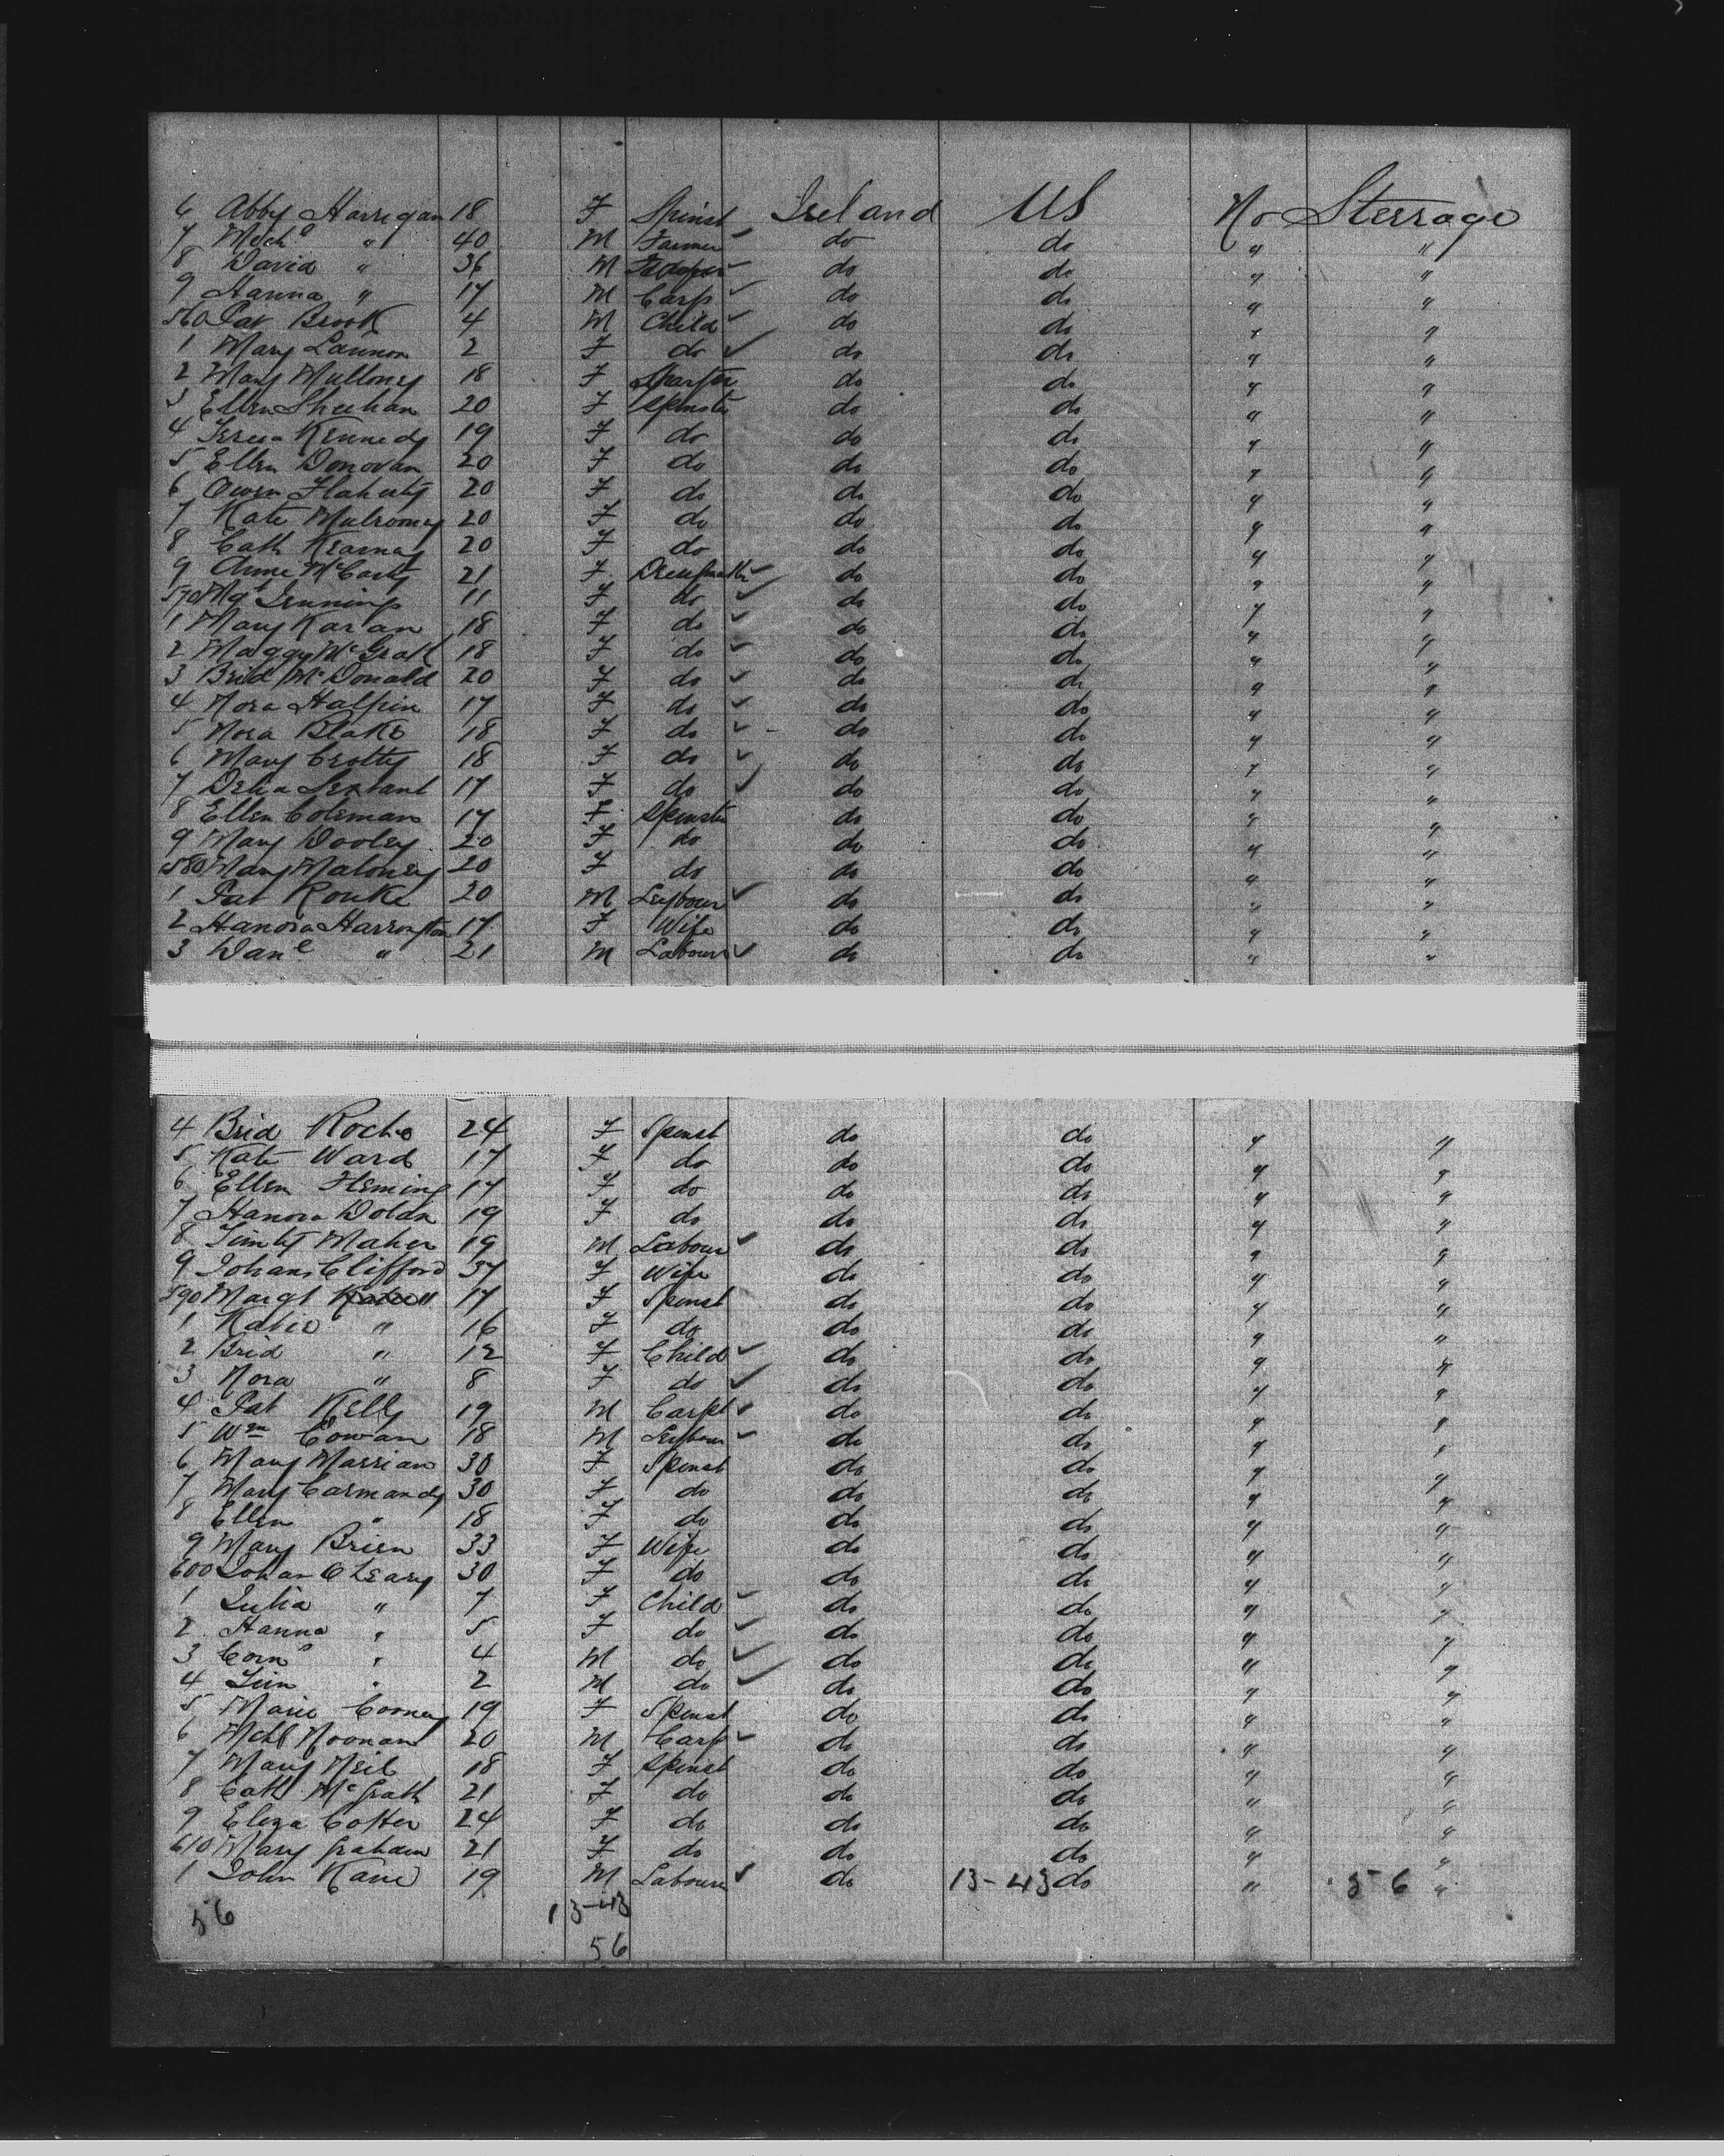 6 Abby Harrigan 18 F Spinst Ireland US No Sterrage
7 Mich " 40 M Farmer do do " "
8 David " 36 M do do " "
9 Hanna " 17 M Carp do do " "
560 Pat Brook 4 M Child do do " "
1 Mary Lannon 2 F do do do " "
2 Mary Mulloney 18 F do do " "
3 Ellen Sheehan 20 F Spinst do do " "
4 Teresa Kennedy 19 F do do do " "
5 Ellen Donovan 20 F do do do " "
6 Owen Flaherty 20 F do do do " "
7 Kate Mulrooney 20 F do do do " "
8 Cath Kearney 20 F do do do " "
9 Anne McCarty 21 F do do " "
570 Mgt Jennings 11 F do do do " "
1 Mary Karan 18 F do do do " "
2 Maggy McGrath 18 F do do do " "
3 Brid McDonald 20 F do do do " "
4 Nora Halpin 17 F do do do " "
5 Nora Blake 18 F do do do " "
6 Mary Crotty 18 F do do do " "
7 Delia Sextant 17 F do do do " "
8 Ellen Coleman 17 F Spinster do do " "
9 Mary Dooley 20 F do do do " "
580 Mary Maloney 20 F do do do " "
1 Pat Rourke 20 M do do " "
2 Hanora Harrington 17 F Wife do do " "
3 Danl " 21 M Labourer do do " "
4 Brid Roche 24 F Spinst do do " "
5 Kate Ward 17 F do do do " "
6 Ellen Fleming 17 F do do do " "
7 Hanora Dolan 19 F do do do " "
8 Timty Maher 19 M Labour do do " "
9 Johana Clifford 37 F Wife do do " "
590 Margt " 17 F Spinst do do " "
1 Katie " 16 F do do do " "
2 Brid " 12 F Child do do " "
3 Nora " 8 F do do do " "
4 Pat Kelly 19 M Carpt do do " "
5 Wm Cowan 18 M do do " "
6 Mary Marrian 30 F Spinst do do " "
7 Mary Carmandy 30 F do do do " "
8 Ellen " 18 F do do do " "
9 Mary Brien 33 F Wife do do " "
600 Johan OLeary 30 F do do do " "
1 Julia " 7 F Child do do " "
2 Hanna " 5 F do do do " "
3 Corns " 4 M do do do " "
4 Jim " 2 M do do do " "
5 Marie Cooney 19 F Spinst do do " "
6 Mchl Noonan 20 M Carp do do " "
7 Mary Neil 18 F Spinst do do " "
8 Cath McGrath 21 F do do do " "
9 Eliza Cotter 24 F do do do " "
610 Mary Graham 21 F do do do " "
1 John Kane 19 M Labourer do 13-43 do " 56 "
56 13-43
56